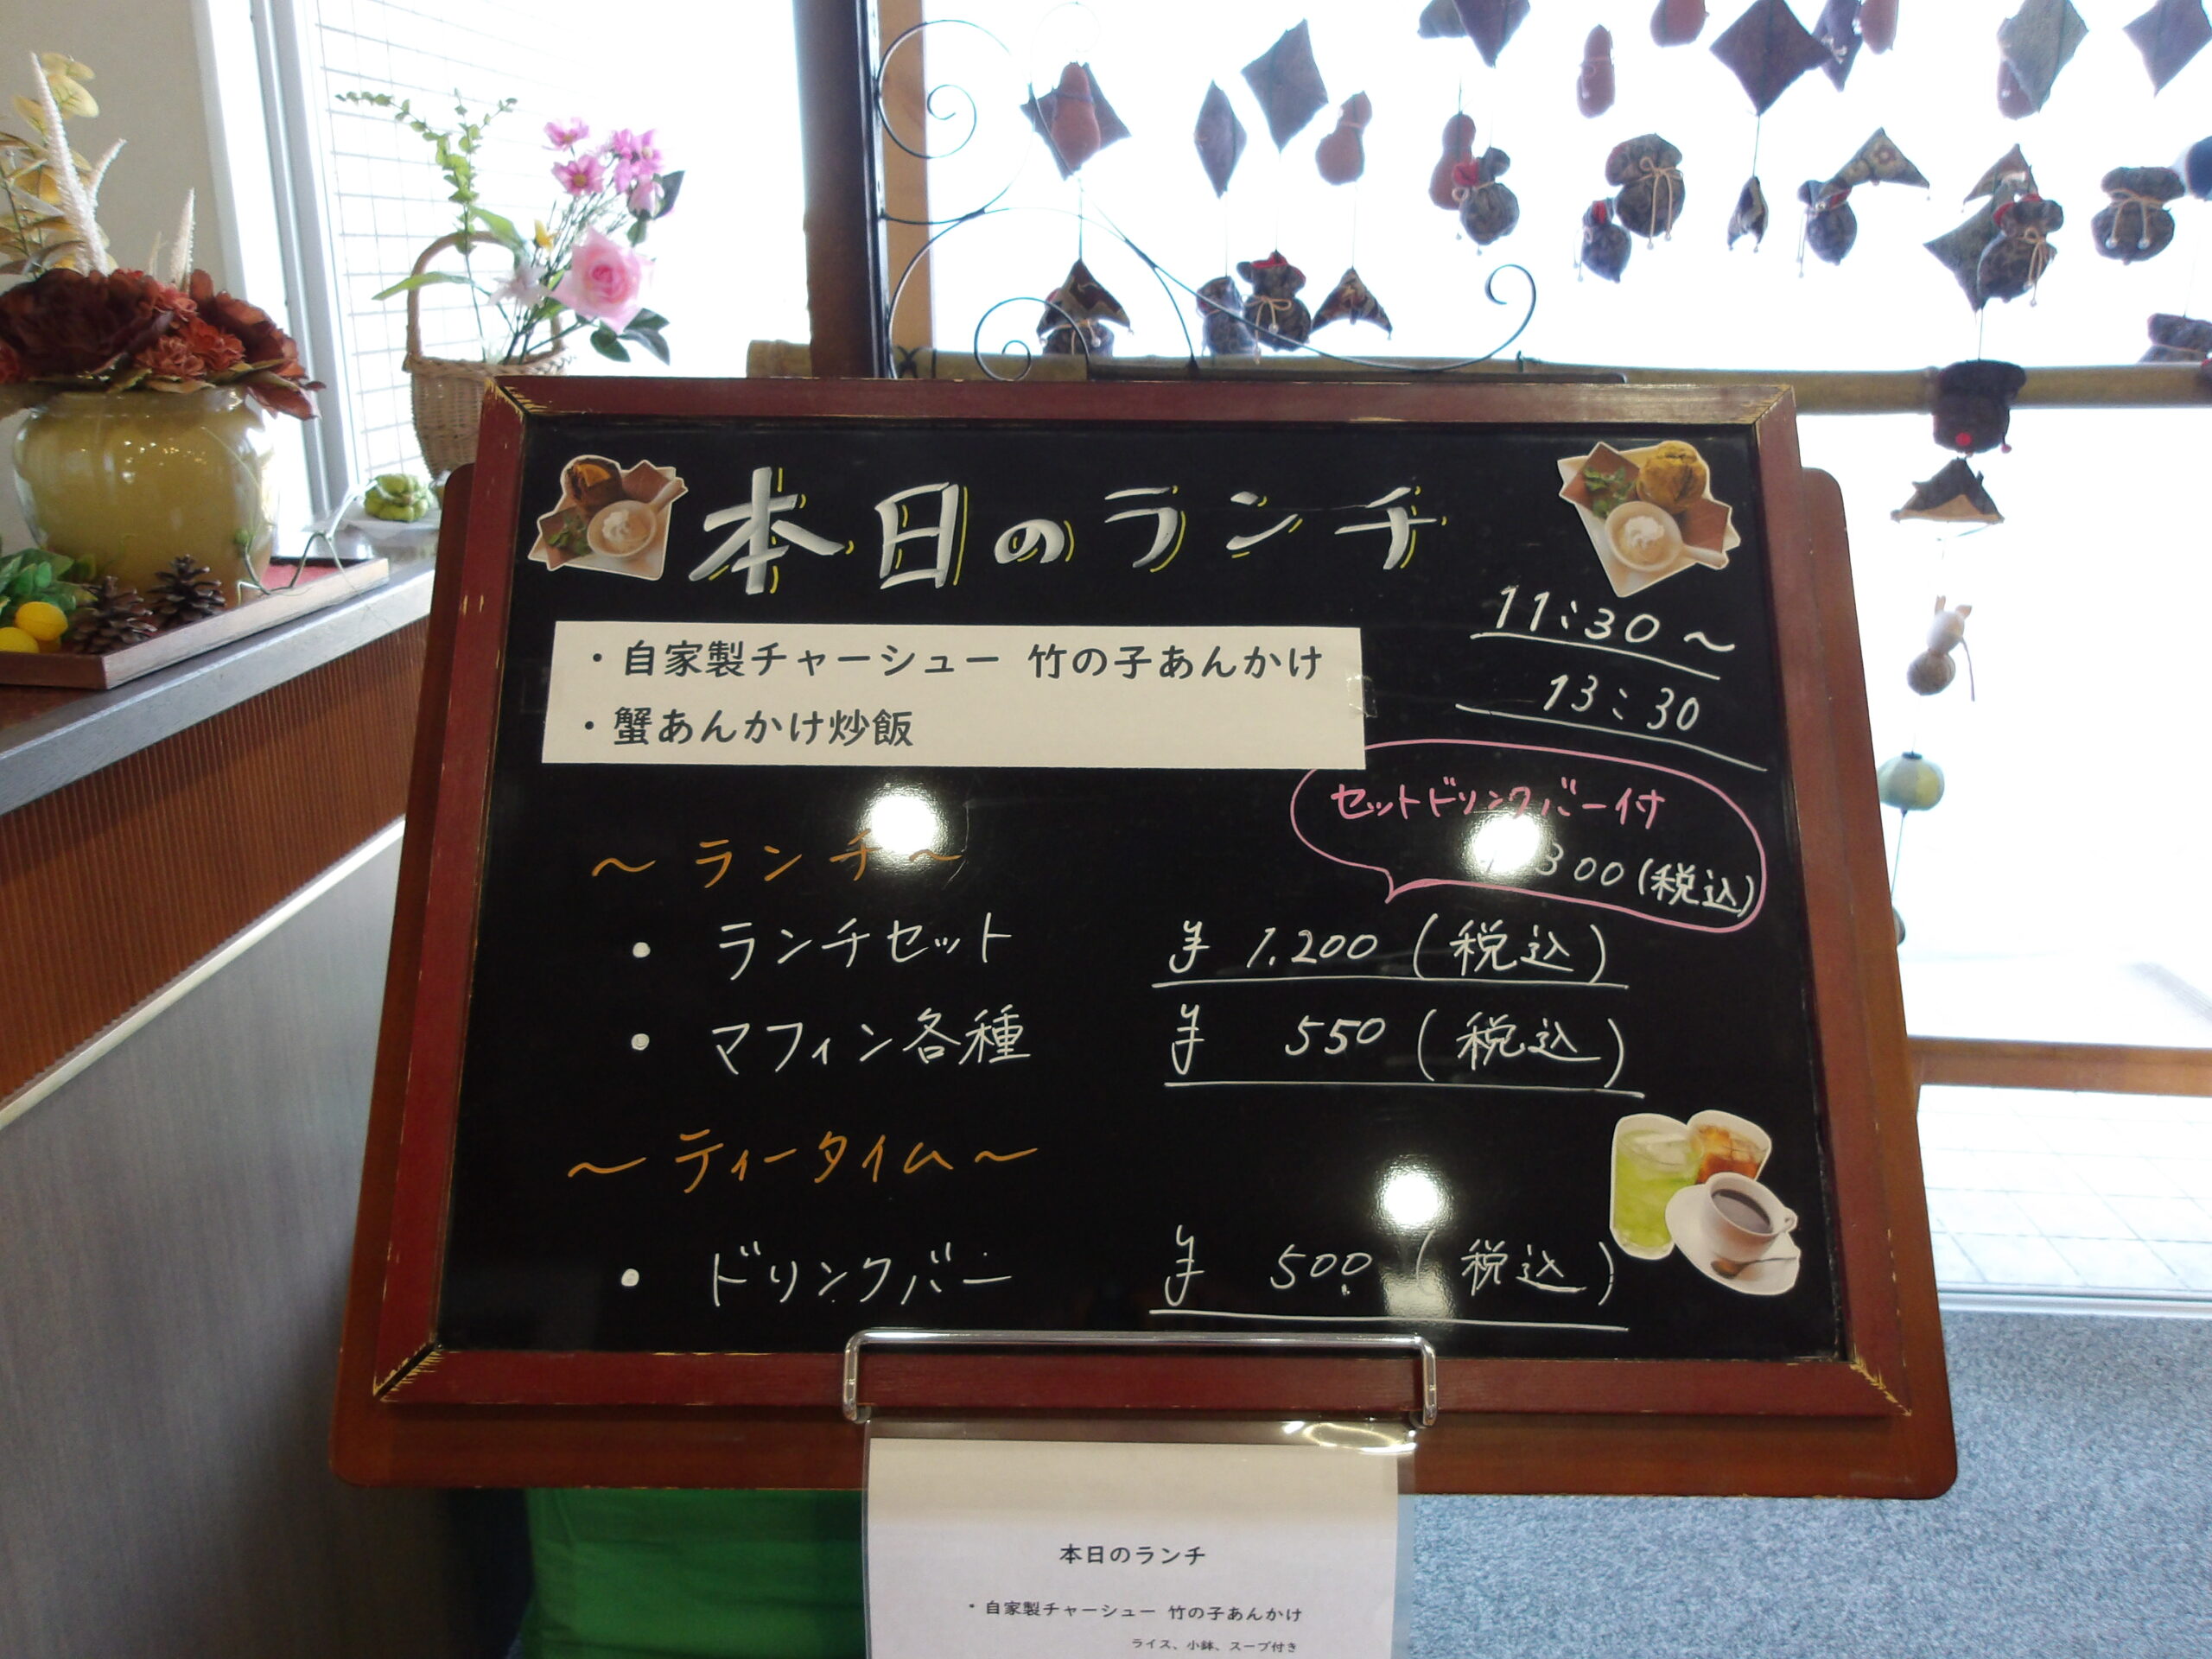 本日のランチ
・自家製チャーシュー 竹の子あんかけ
・蟹あんかけ炒飯
11:30〜
13:30
セットドリンクバー付
300(税込)
〜ランチ〜
・ランチセット ¥1.200(税込)
・マフィン各種 ¥550(税込)
〜ティータイム〜
・ドリンクバー ¥500(税込)
本日のランチ
・自家製チャーシュー 竹の子あんかけ
ライス、小鉢、スープ付き